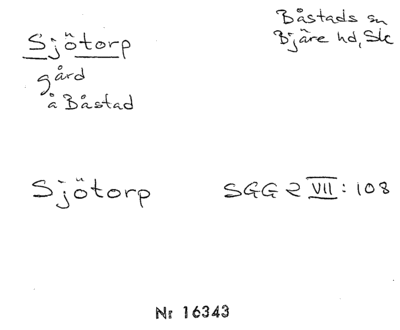 Sjötorp
gård
å Båstad
Båstads sn
Bjäre hd, Sk
Sjötorp
SGG 2 VII : 108
Nr 16343